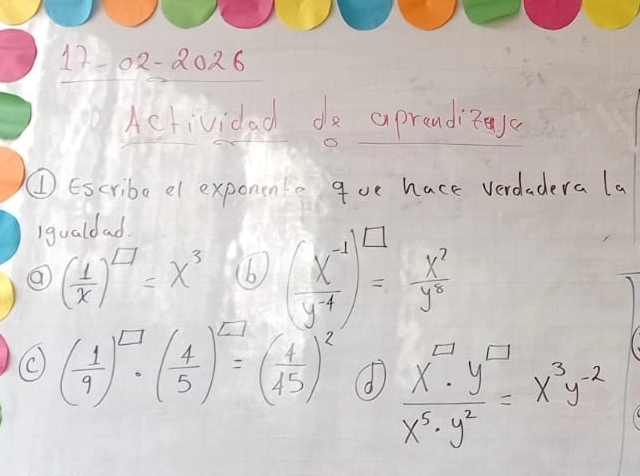 17-02-2026
Actividad de aprendizaje
① Escribe el exponente que hace verdadera la
igualdad.
ⓐ (1/x)^□ = x^3 ⓑ (x^-1/y^-4)^□ = x^2/y^8
ⓒ (1/9)^□ · (4/5)^□ = (4/45)^2 ⓓ x^□ · y^□ / x^5 · y^2 = x^3 y^-2